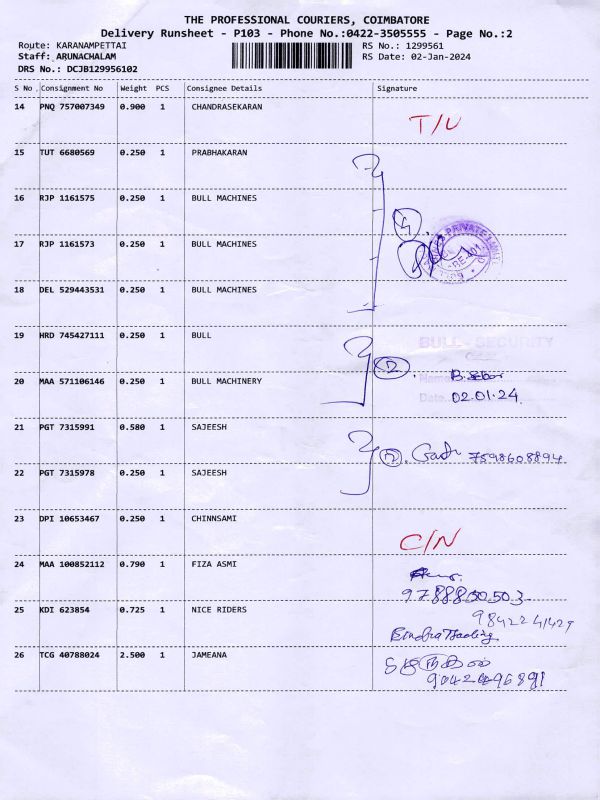 THE PROFESSIONAL COURIERS, COIMBATORE
Delivery Runsheet - P103 - Phone No.:0422-3505555 - Page No.:2
Route: KARANAMPETTAI RS No.: 1299561
Staff: ARUNACHALAM RS Date: 02-Jan-2024
DRS No.: DCJB129956102
S No. Consignment No Weight PCS Consignee Details Signature
14 PNQ 757007349 0.900 1 CHANDRASEKARAN
T/U
15 TUT 6680569 0.250 1 PRABHAKARAN
16 RJP 1161575 0.250 1 BULL MACHINES
4
17 RJP 1161573 0.250 1 BULL MACHINES
18 DEL 529443531 0.250 1 BULL MACHINES
19 HRD 745427111 0.250 1 BULL
BULL - SECURITY
2
20 MAA 571106146 0.250 1 BULL MACHINERY
Name
Date 02.01.24
21 PGT 7315991 0.580 1 SAJEESH
2 7598608894
22 PGT 7315978 0.250 1 SAJEESH
23 DPI 10653467 0.250 1 CHINNSAMI
C/N
24 MAA 100852112 0.790 1 FIZA ASMI
25 KDI 623854 0.725 1 NICE RIDERS
26 TCG 40788024 2.500 1 JAMEANA